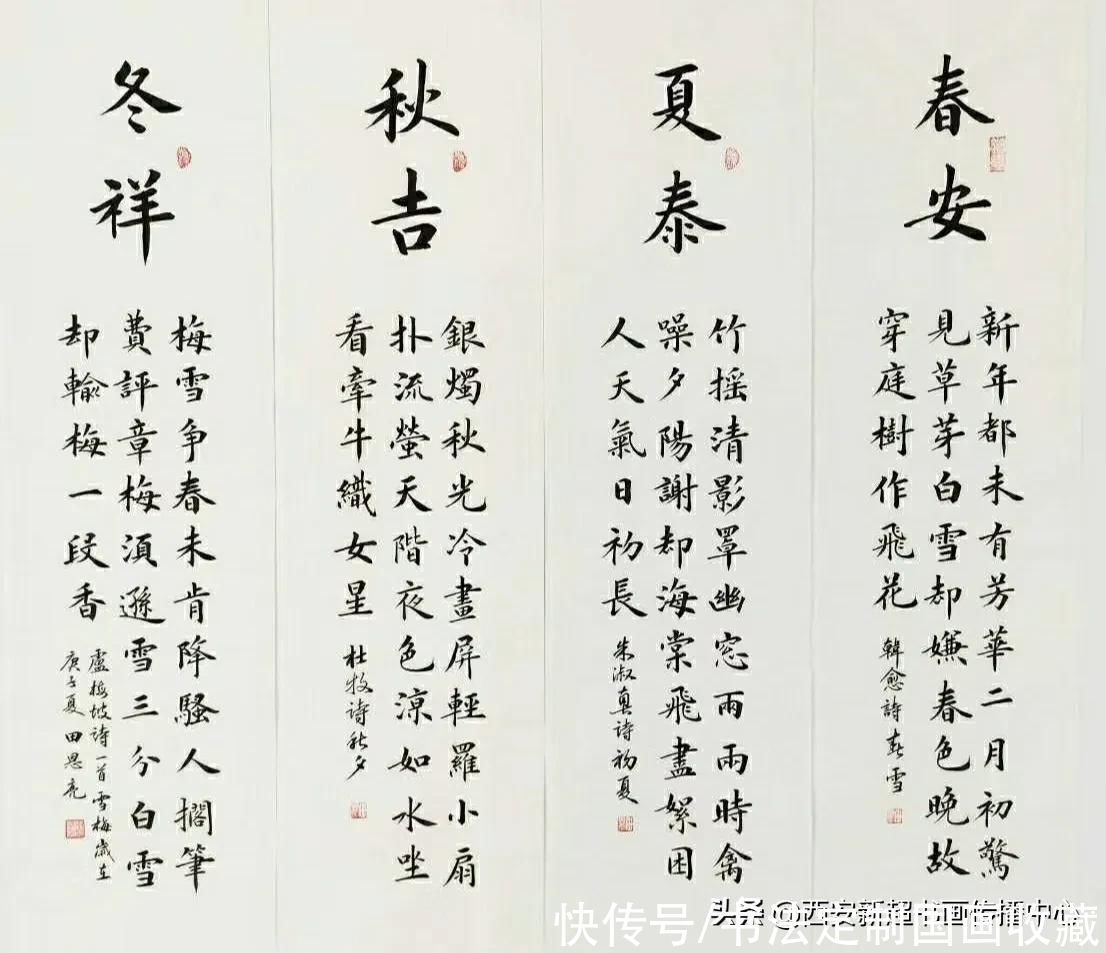 春安
新年都未有芳華二月初驚
見草芽白雪却嫌春色晚故
穿庭樹作飛花
韓愈詩春雪
夏泰
竹摇清影罩幽窓兩兩時禽
噪夕陽謝却海棠飛盡絮困
人天氣日初長
朱淑真诗初夏
秋吉
銀燭秋光冷畫屏輕羅小扇
扑流螢天階夜色涼如水坐
看牽牛織女星
杜牧诗秋夕
冬祥
梅雪争春未肯降騷人擱筆
費評章梅須遜雪三分白雪
却輸梅一段香
盧梅坡诗一首雪梅歲在
庚子夏田思亮
头条@西安新超书画传播中心
快传号/书法定制国画收藏